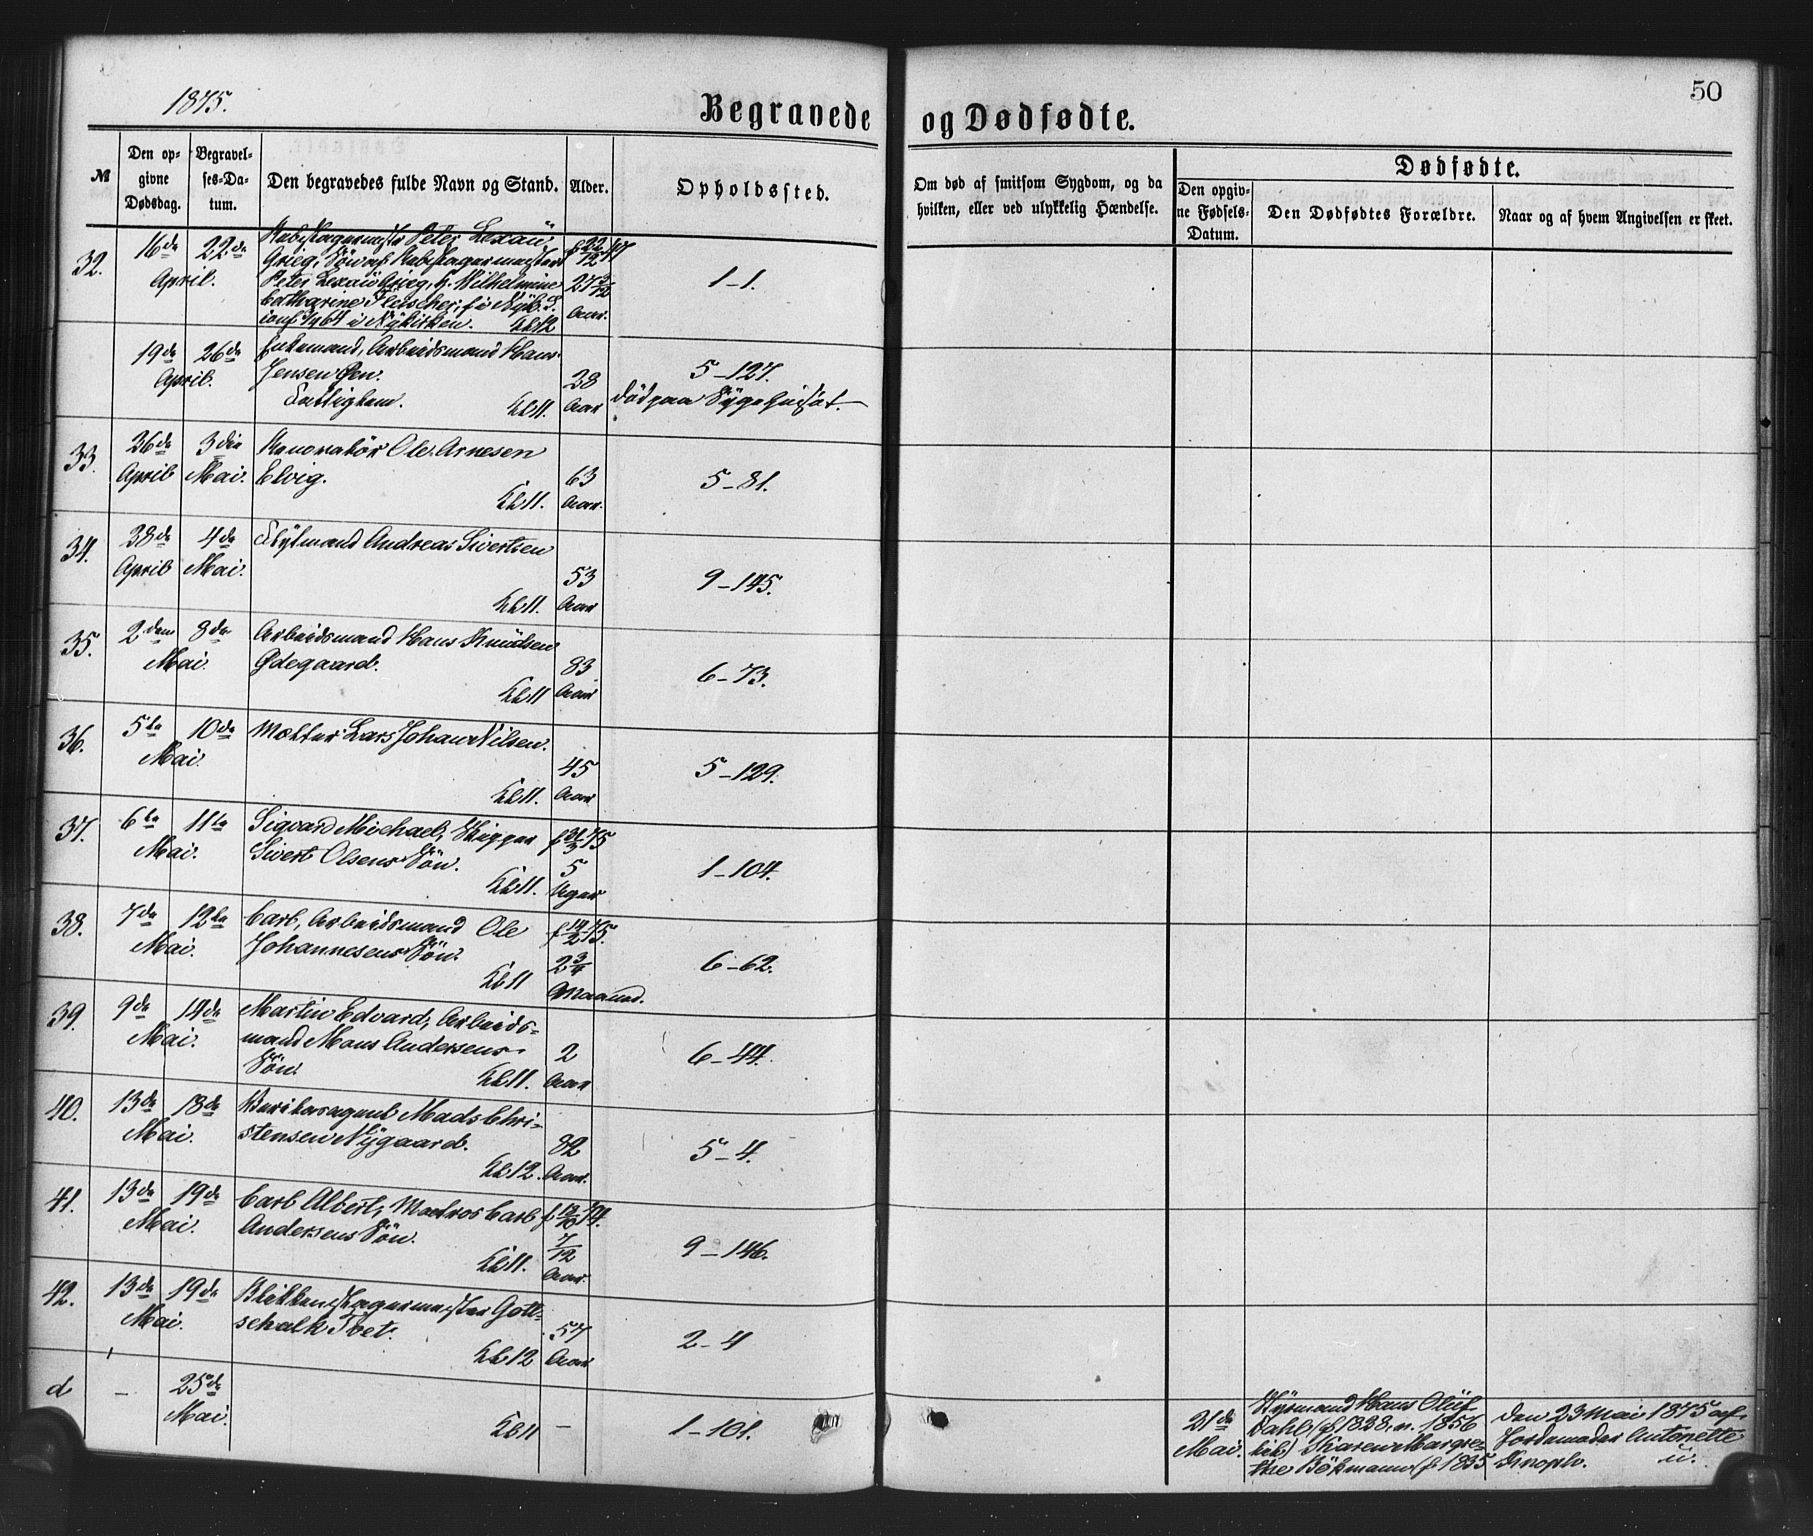 50
1875.
Begravede og Dødfødte.
№
Den opgivne Dødsdag.
Begravelses-Datum.
Den begravedes fulde Navn og Stand.
Alder.
Opholdssted.
Om død af smitsom Sygdom, og da
hvilken, eller ved ulykkelig Hændelse.
Dødfødte.
Den opgivne Fødsels-Datum.
Den Dødfødtes Forældre.
Naar og af hvem Angivelsen er skeet.
32.
16de 22de
April.
Rebslagermester Peter Lexau
Grieg, Søn af Rebslagermester
Peter Lexau Grieg, h. Wilhelmine
Catharine Fleischer, f. i Nyk. s.
conf. 1864 i Nykirken. Kl 12
f 22/12 47
27 3/12
Aar.
1-1.
19de 26de
April.
Enkemand, Arbeidsmand Hans
Jensen
Fattiglem.
Kl 11.
Aar
5-127.
død paa Sygehuset.
33.
26de April
3die Mai.
Renovatør Ole Arnesen
Elvig.
Kl 11.
63
Aar.
5-81.
34.
28de April
4de Mai.
Flytmand Andreas Sivertsen
Kl 11.
53
Aar
9-145.
35.
2den 8de
Mai.
Arbeidsmand Hans Knudsen
Ødegaard.
Kl 11
83
Aar
6-73.
36.
5te 10de
Mai.
Mælter Lars Johan Nilsen.
Kl 11.
45
Aar
5-129.
37.
6te 11te
Mai.
Sigvard Michael, Skipper
Sivert Olsens Søn.
Kl 11.
f 31/3 75
5
Uger
1-104.
38.
7de 12te
Mai.
Carl, Arbeidsmand Ole
Johannesens Søn.
Kl 11
f 14/2 75.
2 3/4
Maaned.
6-62.
39.
9de 14de
Mai.
Martin Edvard, Arbeids-
mand Mons Andersens
Søn.
Kl 11.
2
Aar
6-44.
40.
13de 18de
Mai.
Mads Chri-
stensen Nygaard.
Kl 12.
82
Aar.
5-4.
41.
13de 19de
Mai.
Carl Albert, Matros Carl
Andersens Søn.
Kl 11.
74.
7/12
Aar.
9-146.
42.
13de 19de
Mai.
Blikkenslagermester Gott-
schalk Tvet.
Kl 12
57
Aar
2-4
d
-
25de
Mai.
Kl 11
-
1-101.
21de
Mai.
Styrmand Hans Oluf
Dahl (f 1828, v. 1856
Karen Margre-
the Bøkmann (f 1835
den 23 Mai 1875 af
Jordemoder Antonette
Knoph.